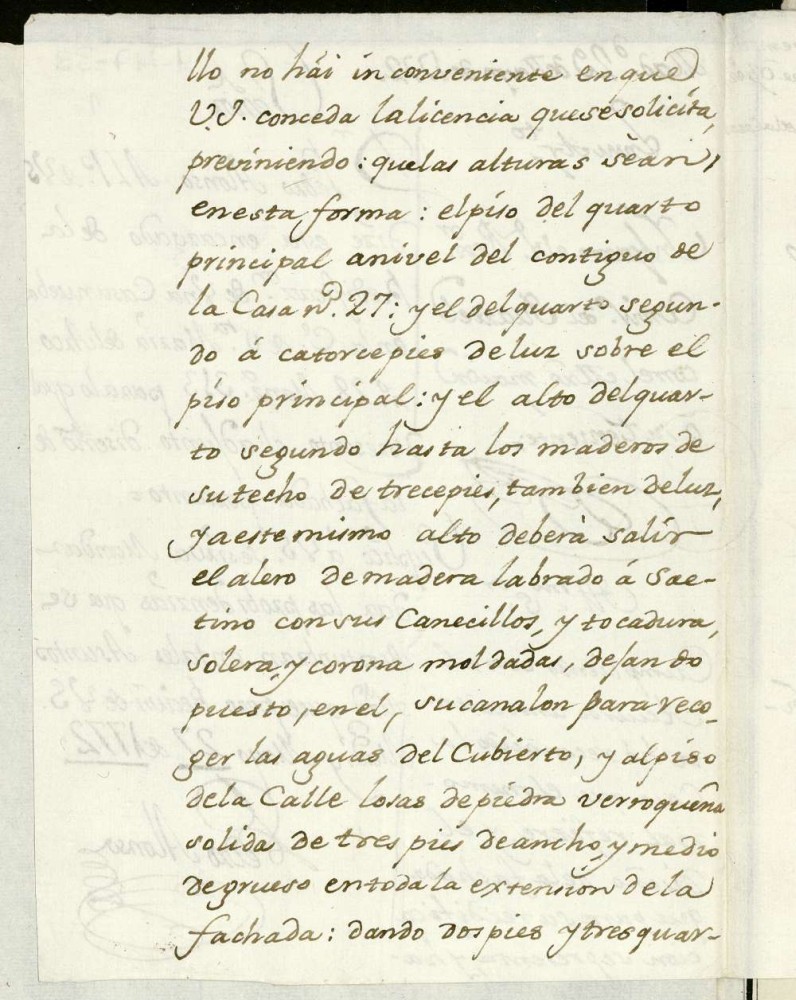 llo no hái inconveniente en que
V.I. conceda la licencia que se solicita,
previniendo: que las alturas sean,
en esta forma: el piso del quarto
principal a nivel del contiguo de
la Casa nº. 27: y el del quarto segun-
do á catorce pies de luz sobre el
piso principal: y el alto del quar-
to segundo hasta los maderos de
su techo de trece pies, tambien de luz,
y a este mismo alto deberà salir
el alero de madera labrado á Sae-
tino con sus Canecillos, y tocadura,
solera, y corona moldadas, dejando
puesto, en el, su canalon para reco-
ger las aguas del Cubierto, y al piso
de la Calle losas de piedra verroqueña
solida de tres pies de ancho, y medio
de grueso en toda la extension de la
fachada: dando dos pies y tres quar-